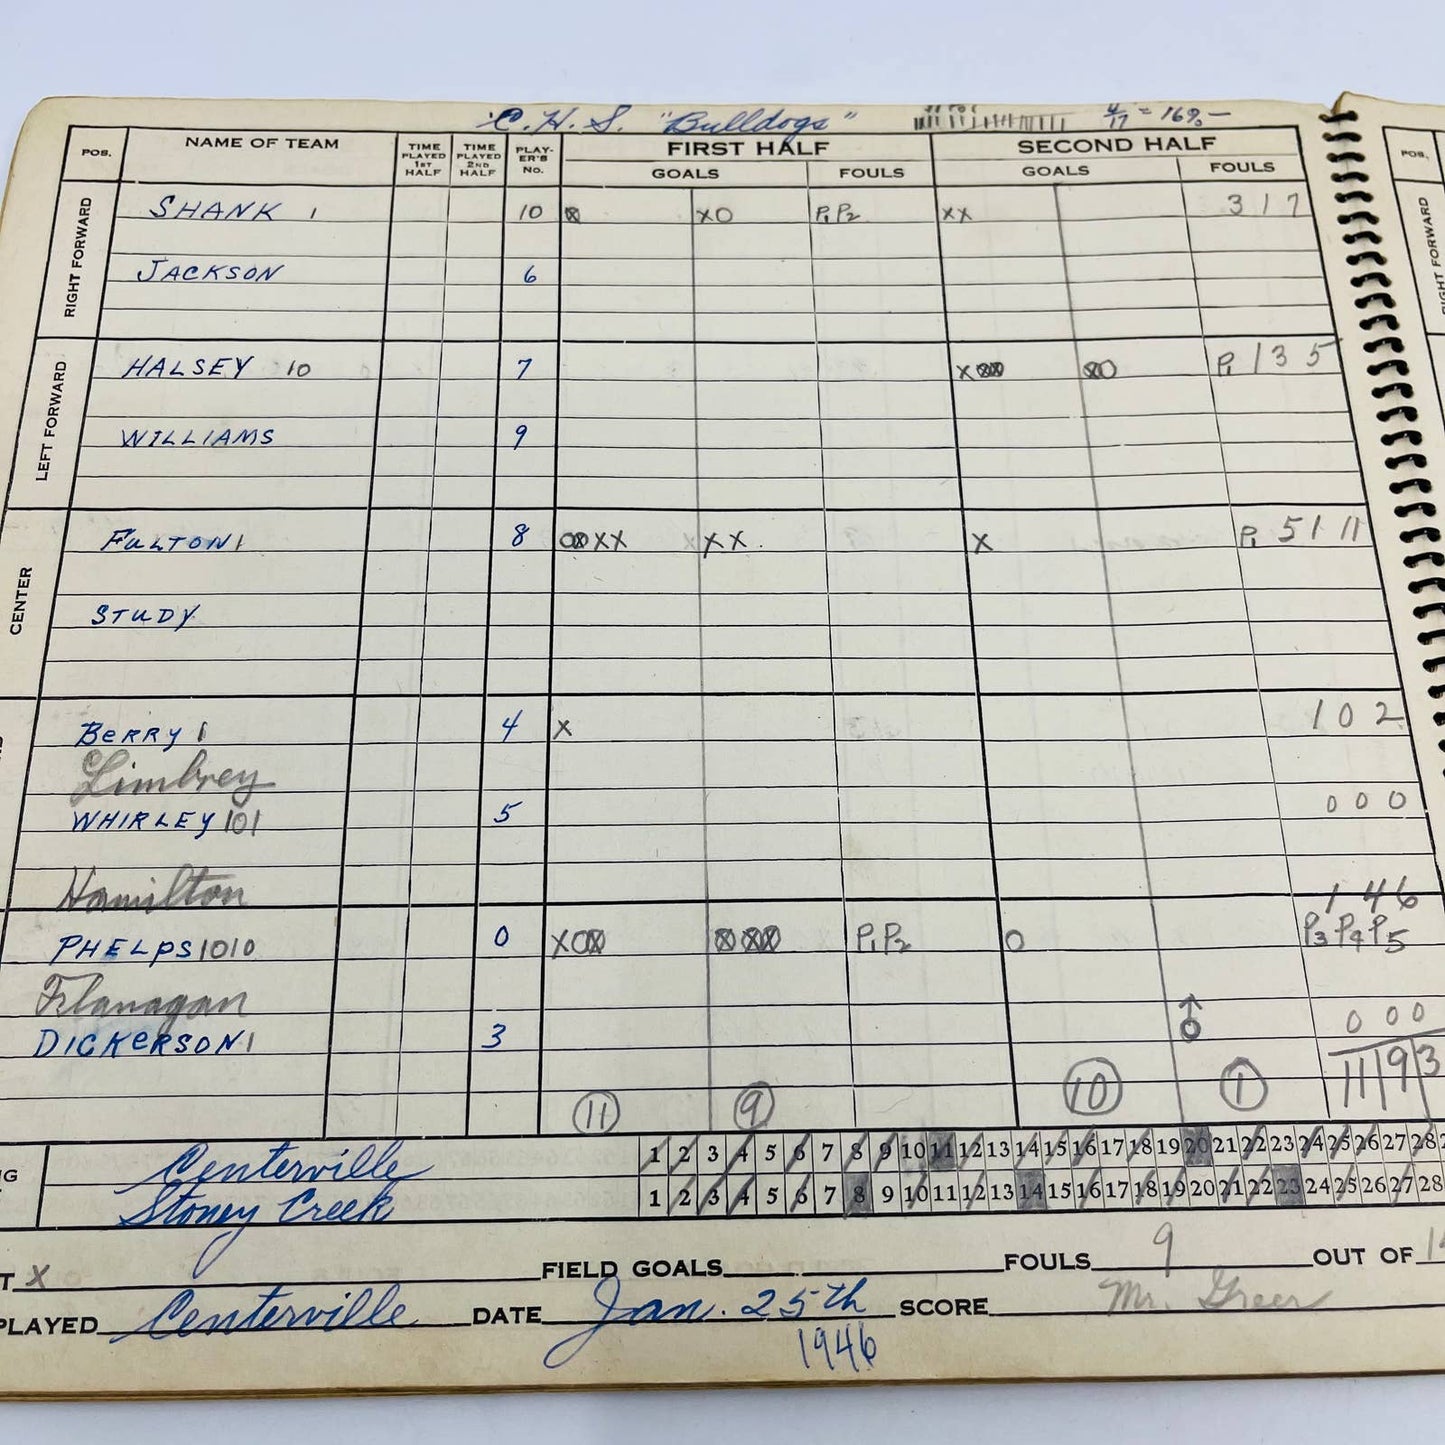 C.H.S. "Bulldogs" 4/17 = 16% -
POS. NAME OF TEAM TIME PLAYED 1ST HALF TIME PLAYED 2ND HALF PLAYER'S No. FIRST HALF SECOND HALF POS.
GOALS FOULS GOALS FOULS
RIGHT FORWARD SHANK 1 10 XO P1 P2 XX 3 1 7
JACKSON 6
LEFT FORWARD HALSEY 10 7 X O P1 1 3 5
WILLIAMS 9
CENTER FULTON 1 8 XX XX X P1 5 1 11
STUDY
BERRY 1 4 X 1 0 2
Limbrey
WHIRLEY 101 5 0 0 0
Hamilton 1 4 6
PHELPS 1010 0 X P1 P2 O P3 P4 P5
Flanagan
DICKERSON 1 3 0 0 0
11 9 10 1 11 9
Centerville 1 2 3 4 5 6 7 8 9 10 11 12 13 14 15 16 17 18 19 20 21 22 23 24 25 26 27 28
Stoney Creek 1 2 3 4 5 6 7 8 9 10 11 12 13 14 15 16 17 18 19 20 21 22 23 24 25 26 27 28
X FIELD GOALS FOULS 9 OUT OF
PLAYED Centerville DATE Jan. 25th SCORE Mr. Greer
1946
RIGHT FORWARD